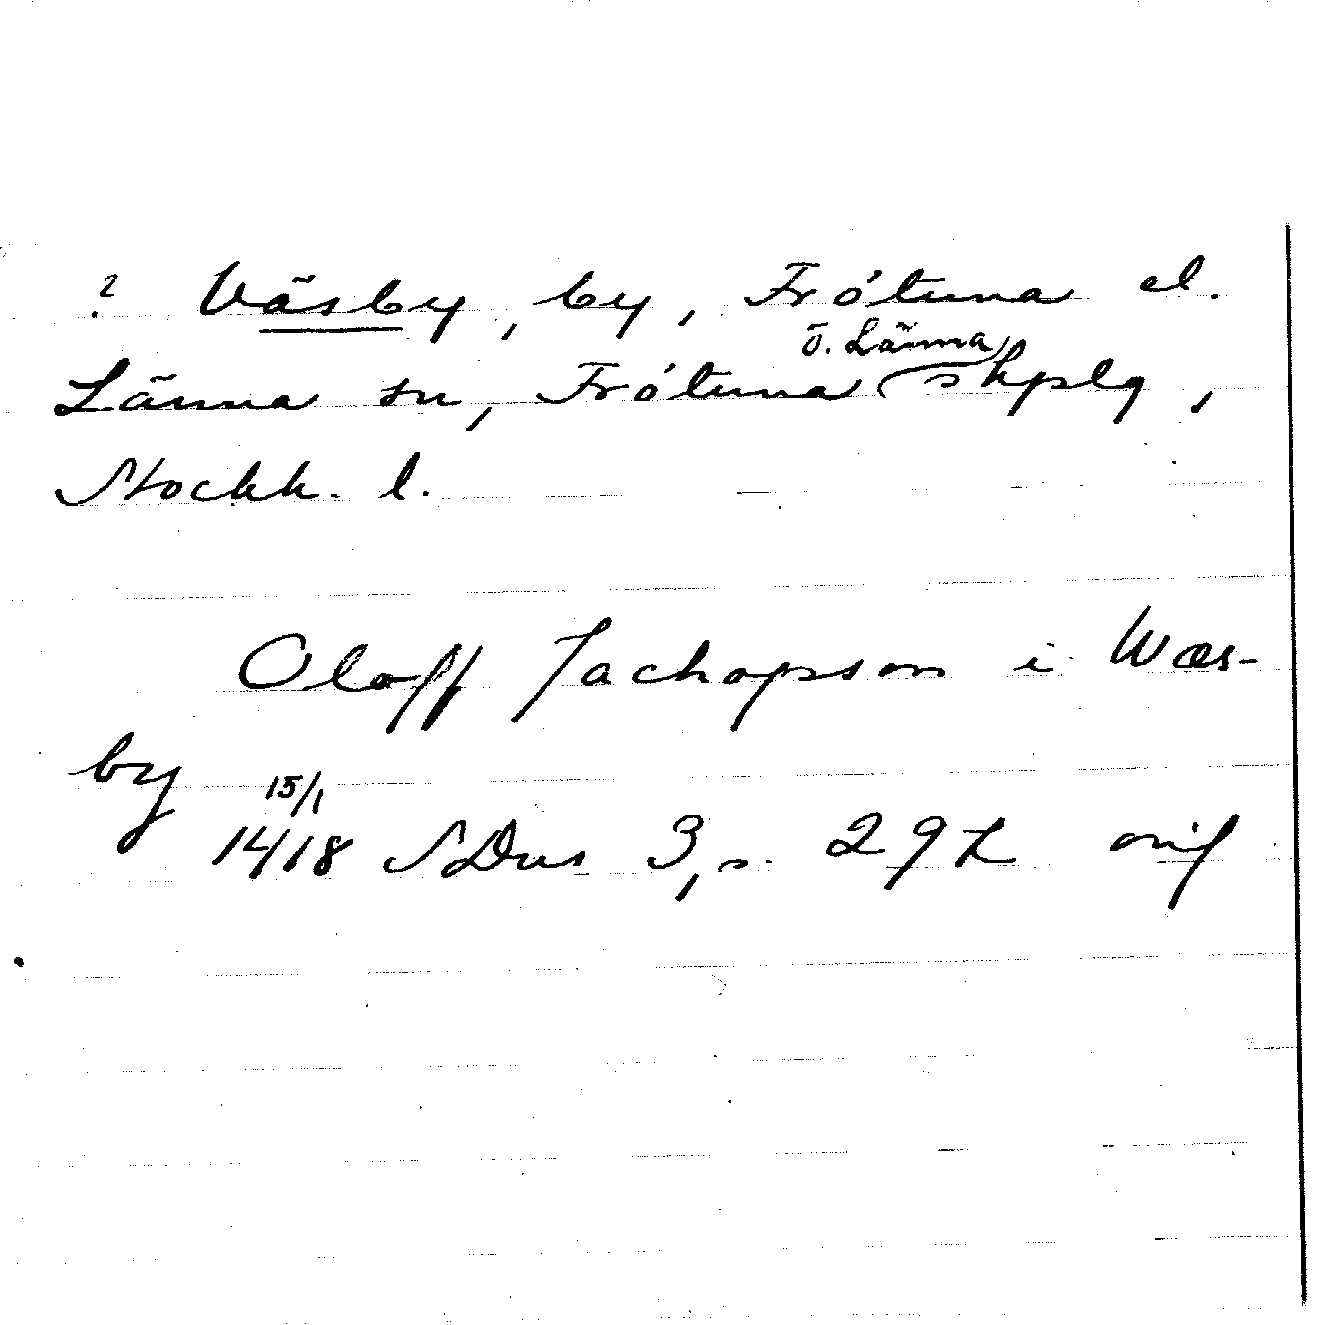 ? Väsby, by, Frötuna el.
o. Länna
Länna sn, Frötuna skplg,
Stockh. l.
Oloff Jachopson i Wæs-
by
15/1
1418 SDns 3, s. 297 orig